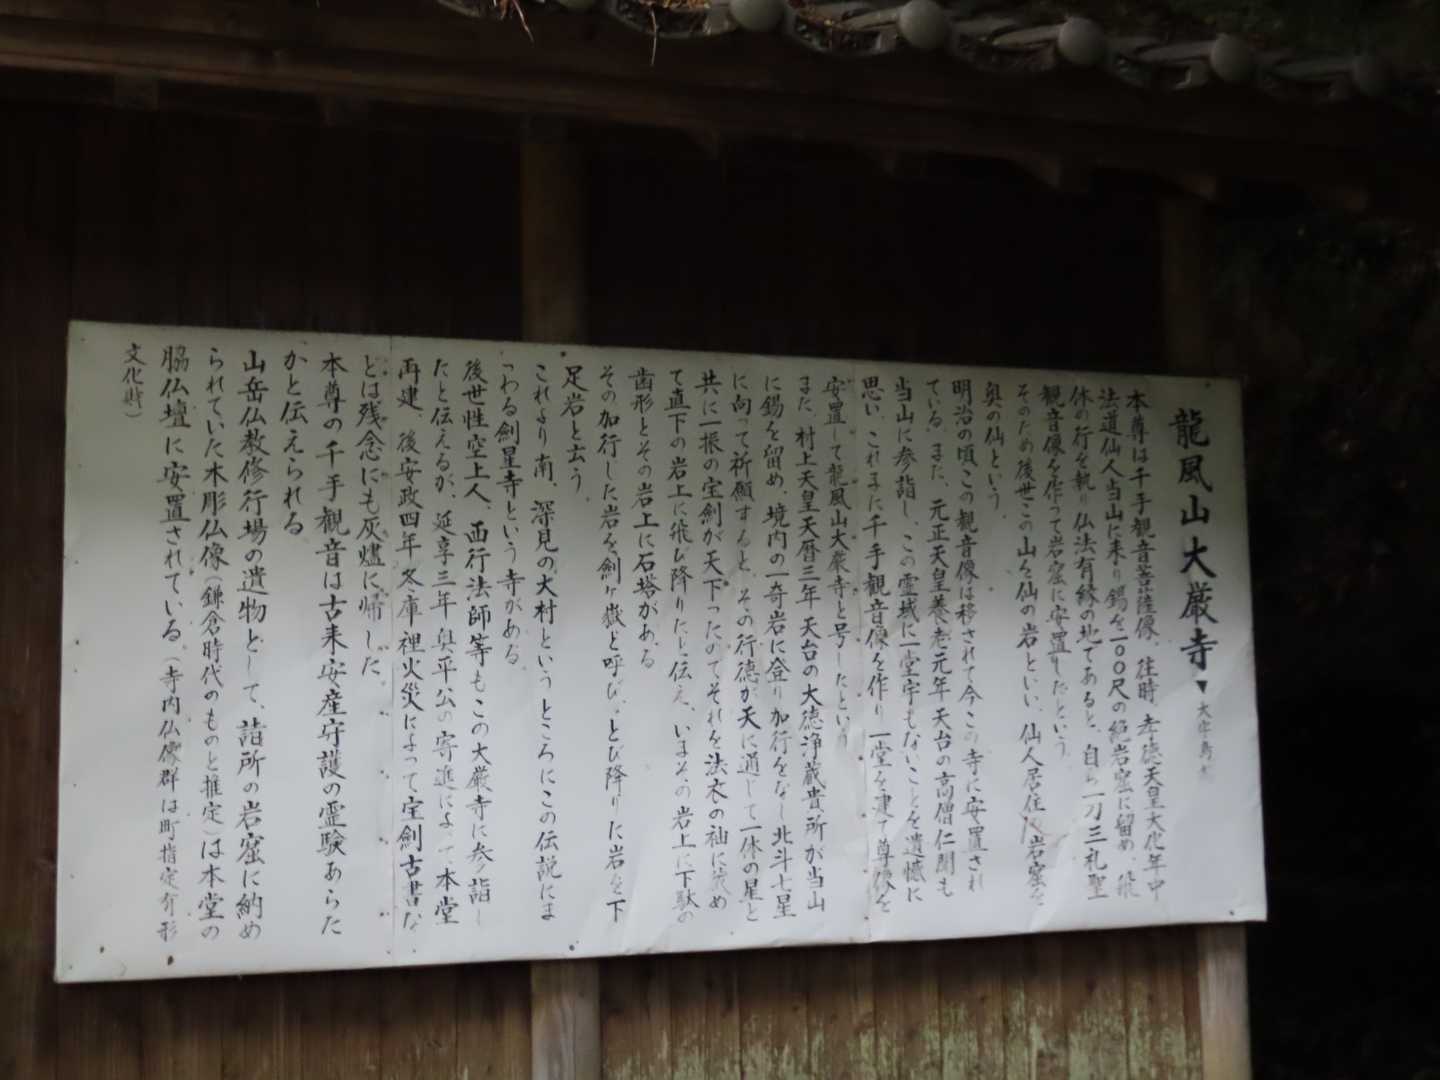 龍風山大厳寺
本尊は千手観音菩薩像、往時、孝徳天皇大化年中
法道仙人当山に来り錫を二〇〇尺の絶岩窟に留め、飛
休の行を執り仏法有縁の地であると、自ら一刀三礼聖
観音像を作って岩窟に安置したという
そのため後世この山を仙の岩といい、仙人居住の岩窟を
奥の仙という
明治の頃この観音像は移されて今この寺に安置され
ている。また、元正天皇養老元年天台の高僧仁聞も
当山に参詣し、この霊域に一堂宇もないことを遺憾に
思い、これまに千手観音像を作り一堂を建て尊像を
安置して龍風山大厳寺と号したという
また、村上天皇天暦三年天台の大徳浄蔵貴所が当山
に錫を留め、境内の一奇岩に登り加行をなし北斗七星
に向って祈願すると、その行徳が天に通じて一体の星と
共に一振の宝剣が天下ったのでそれを法衣の袖に収め
て直下の岩上に飛び降りたと伝え、いまその岩上に下駄の
歯形とその岩上に石塔がある
その加行した岩を剣ヶ嶽と呼び、とび降りた岩を下
足岩と云う
これより南、深見の大村というところにこの伝説にま
つわる剣星寺という寺がある
後世性空上人、西行法師等もこの大厳寺に参々詣し
たと伝えるが、延享三年奥平公の寄進によって本堂
再建、後安政四年冬庫裡火災によって宝剣古書な
とは残念にも灰燼に帰した
本尊の千手観音は古来安産守護の霊験あらた
かと伝えられる
山岳仏教修行場の遺物として、詣所の岩窟に納め
られていた木彫仏像（鎌倉時代のものと推定）は本堂の
脇仏壇に安置されている。（寺内仏像群は町指定有形
文化財）